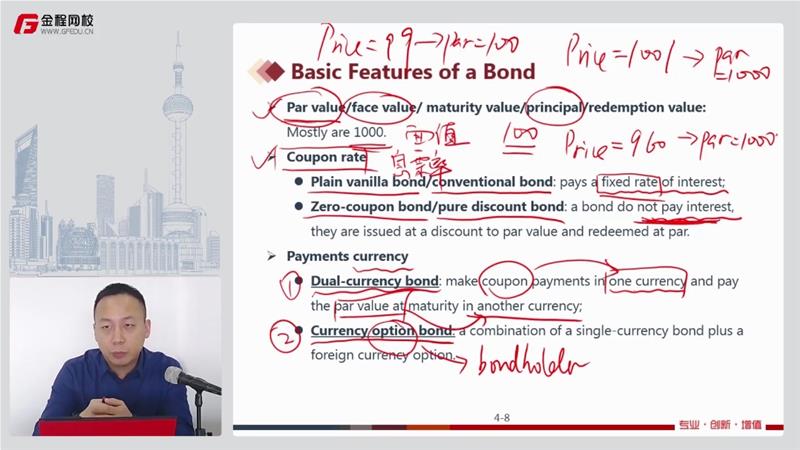 金程网校
WWW.GFEDU.CN
Price=99→par=100
Price=1001→par=1000
Basic Features of a Bond
Par value/face value/ maturity value/principal/redemption value:
Mostly are 1000.
面值
100
Price=960→par=1000
Coupon rate
息票率
Plain vanilla bond/conventional bond: pays a fixed rate of interest;
Zero-coupon bond/pure discount bond: a bond do not pay interest,
they are issued at a discount to par value and redeemed at par.
Payments currency
① Dual-currency bond: make coupon payments in one currency and pay
the par value at maturity in another currency;
② Currency option bond: a combination of a single-currency bond plus a
foreign currency option.
→bondholder
4-8
专业·创新·增值